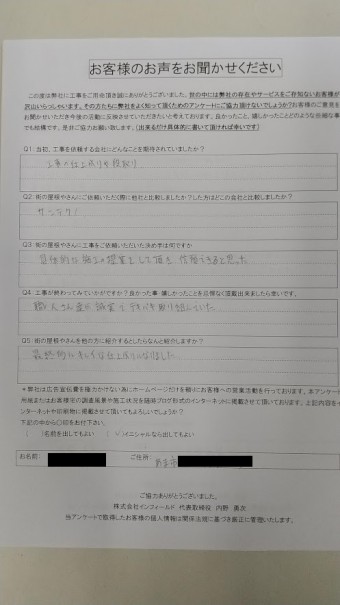 お客様のお声をお聞かせください
この度は弊社に工事をご用命頂き誠にありがとうございました。世の中には弊社の存在やサービスをご存知ないお客様が
沢山いらっしゃいます。その方たちに弊社をよく知って頂くためのアンケートにご協力頂けないでしょうか?お客様のご意見を
お聞かせいただき今後の活動に反映させていただきたいと考えております。良かったこと、嬉しかったことどのような些細な事
でも結構です。是非ご協力お願い致します。(出来るだけ具体的に書いて頂ければ幸いです)
Q1：当初、工事を依頼する会社にどんなことを期待されていましたか?
工事の仕上りと段取り
Q2：街の屋根やさんにご依頼いただく際に他社と比較しましたか?した方はどこの会社と比較しましたか?
Q3：街の屋根やさんに工事をご依頼いただいた決め手は何ですか
具体的な施工の提案をして頂き、信頼できると思った
Q4：工事が終わってみていかがですか?良かった事・嬉しかったことを忌憚なく記載出来ましたら幸いです。
職人さん達が誠実でテキパキ取り組んでいた
Q5：街の屋根やさんを他の方に紹介するとしたらなんと紹介しますか?
最終的にキレイな仕上りになりました
＊弊社は広告宣伝費を極力かけない為にホームページだけを頼りにお客様への営業活動を行っております。本アンケー
イ
ンターネットや印刷物に掲載させて頂いてもよろしいでしょうか?
下記の中から〇印をお付下さい。
( )名前を出してもよい (✓)イニシャルなら出してもよい
お名前： ご住所：
ご協力ありがとうございました。
株式会社インフィールド 代表取締役 内野 勇次
当アンケートで取得したお客様の個人情報は関係法規に基づき厳正に管理いたします。